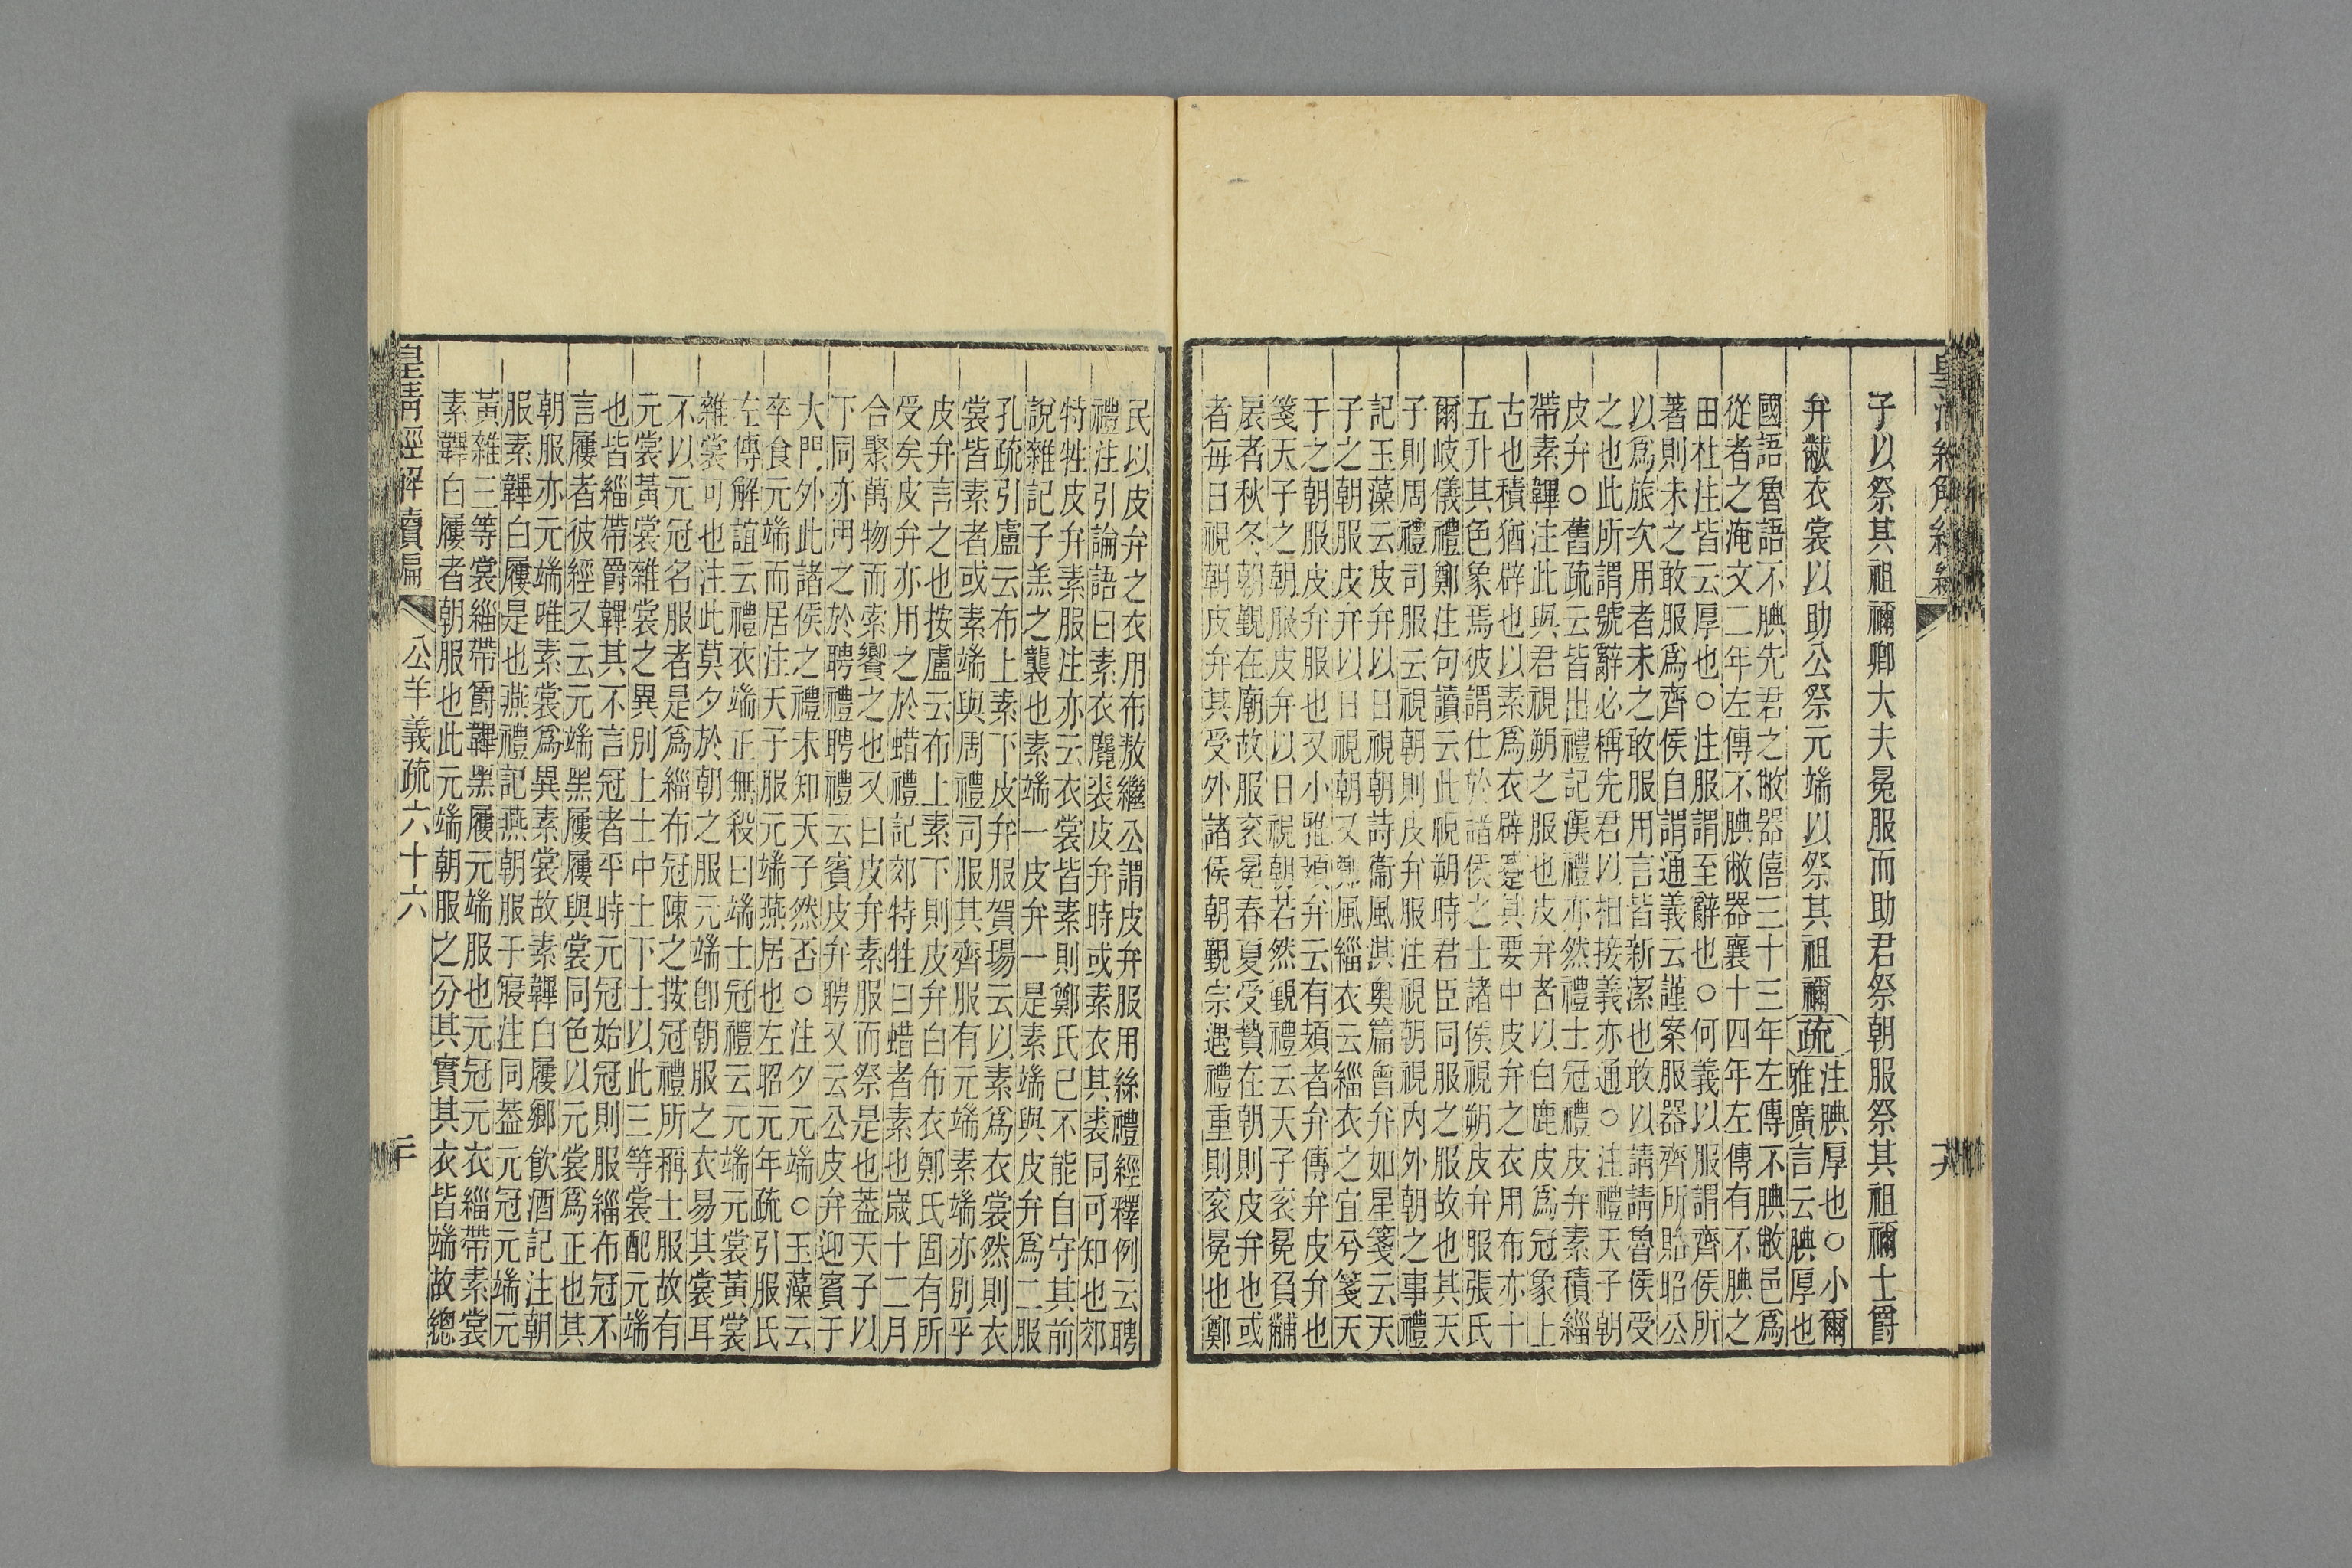 子以祭其祖禰卿大夫冕服而助君祭朝服祭其祖禰士爵
弁黻衣裳以助公祭元端以祭其祖禰疏
注腆厚也○小爾
雅廣言云腆厚也
國語魯語不腆先君之敝器僖三十三年左傳不腆敝邑爲
從者之淹文二年左傳不腆敝器襄十四年左傳有不腆之
田杜注皆云厚也○注服謂至辭也○何義以服謂齊侯所
著則未之敢服爲齊侯自謂通義云謹案服器齊所貽昭公
以爲旅次用者未之敢服用言皆新潔也敢以請請魯侯受
之也此所謂號辭必稱先君以相接義亦通○注禮天子朝
皮弁○舊疏云皆出禮記漢禮亦然禮士冠禮皮弁素積緇
帶素韠注此與君視朔之服也皮弁者以白鹿皮爲冠象上
古也積猶辟也以素爲衣辟蹙其要中皮弁之衣用布亦十
五升其色象焉彼謂仕於諸侯之士諸侯視朔皮弁服張氏
爾岐儀禮鄭注句讀云此視朔時君臣同服之服故也其天
子則周禮司服云視朝則皮弁服注視朝視內外朝之事禮
記玉藻云皮弁以日視朝詩衞風淇奧篇會弁如星箋云天
子之朝服皮弁以日視朝又鄭風緇衣云緇衣之宜兮箋天
子之朝服皮弁服也又小雅頍弁云有頍者弁傳弁皮弁也
箋天子之朝服皮弁以日視朝若然覲禮云天子衮冕負黼
扆者秋冬朝覲在廟故服衮冕春夏受贄在朝則皮弁也或
者每日視朝皮弁其受外諸侯朝覲宗遇禮重則衮冕也鄭
民以皮弁之衣用布敖繼公謂皮弁服用絲禮經釋例云聘
禮注引論語曰素衣麑裘皮弁時或素衣其裘同可知也郊
特牲皮弁素服注亦云衣裳皆素則鄭氏已不能自守其前
說雜記子羔之襲也素端一皮弁一是素端與皮弁爲二服
孔疏引盧云布上素下皮弁服賀瑒云以素爲衣裳然則衣
裳皆素者或素端與周禮司服其齊服有元端素端亦別乎
皮弁言之也按盧云布上素下則皮弁白布衣鄭氏固有所
受矣皮弁亦用之於蜡禮記郊特牲曰蜡者索也歲十二月
合聚萬物而索饗之也又曰皮弁素服而祭是也葢天子以
下同亦用之於聘禮聘禮云賓皮弁聘又云公皮弁迎賓于
大門外此諸侯之禮未知天子然否○注夕元端○玉藻云
卒食元端而居注天子服元端燕居也左昭元年疏引服氏
左傳解誼云禮衣端正無殺曰端士冠禮云元端元裳黃裳
雜裳可也注此莫夕於朝之服元端卽朝服之衣易其裳耳
不以元冠名服者是爲緇布冠陳之按冠禮所稱士服故有
元裳黃裳雜裳之異別上士中士下士以此三等裳配元端
也皆緇帶爵韠其不言冠者平時元冠始冠則服緇布冠不
言屨者彼經又云元端黑屨屨與裳同色以元裳爲正也其
朝服亦元端唯素裳爲異素裳故素韠白屨鄉飲酒記注朝
服素韠白屨是也燕禮記燕朝服于寢注同葢元冠元端元
黃雜三等裳緇帶爵韠黑屨元端服也元冠元衣緇帶素裳
素韠白屨者朝服也此元端朝服之分其實其衣皆端故總
皇清經解續編
公羊義疏六十六
二十